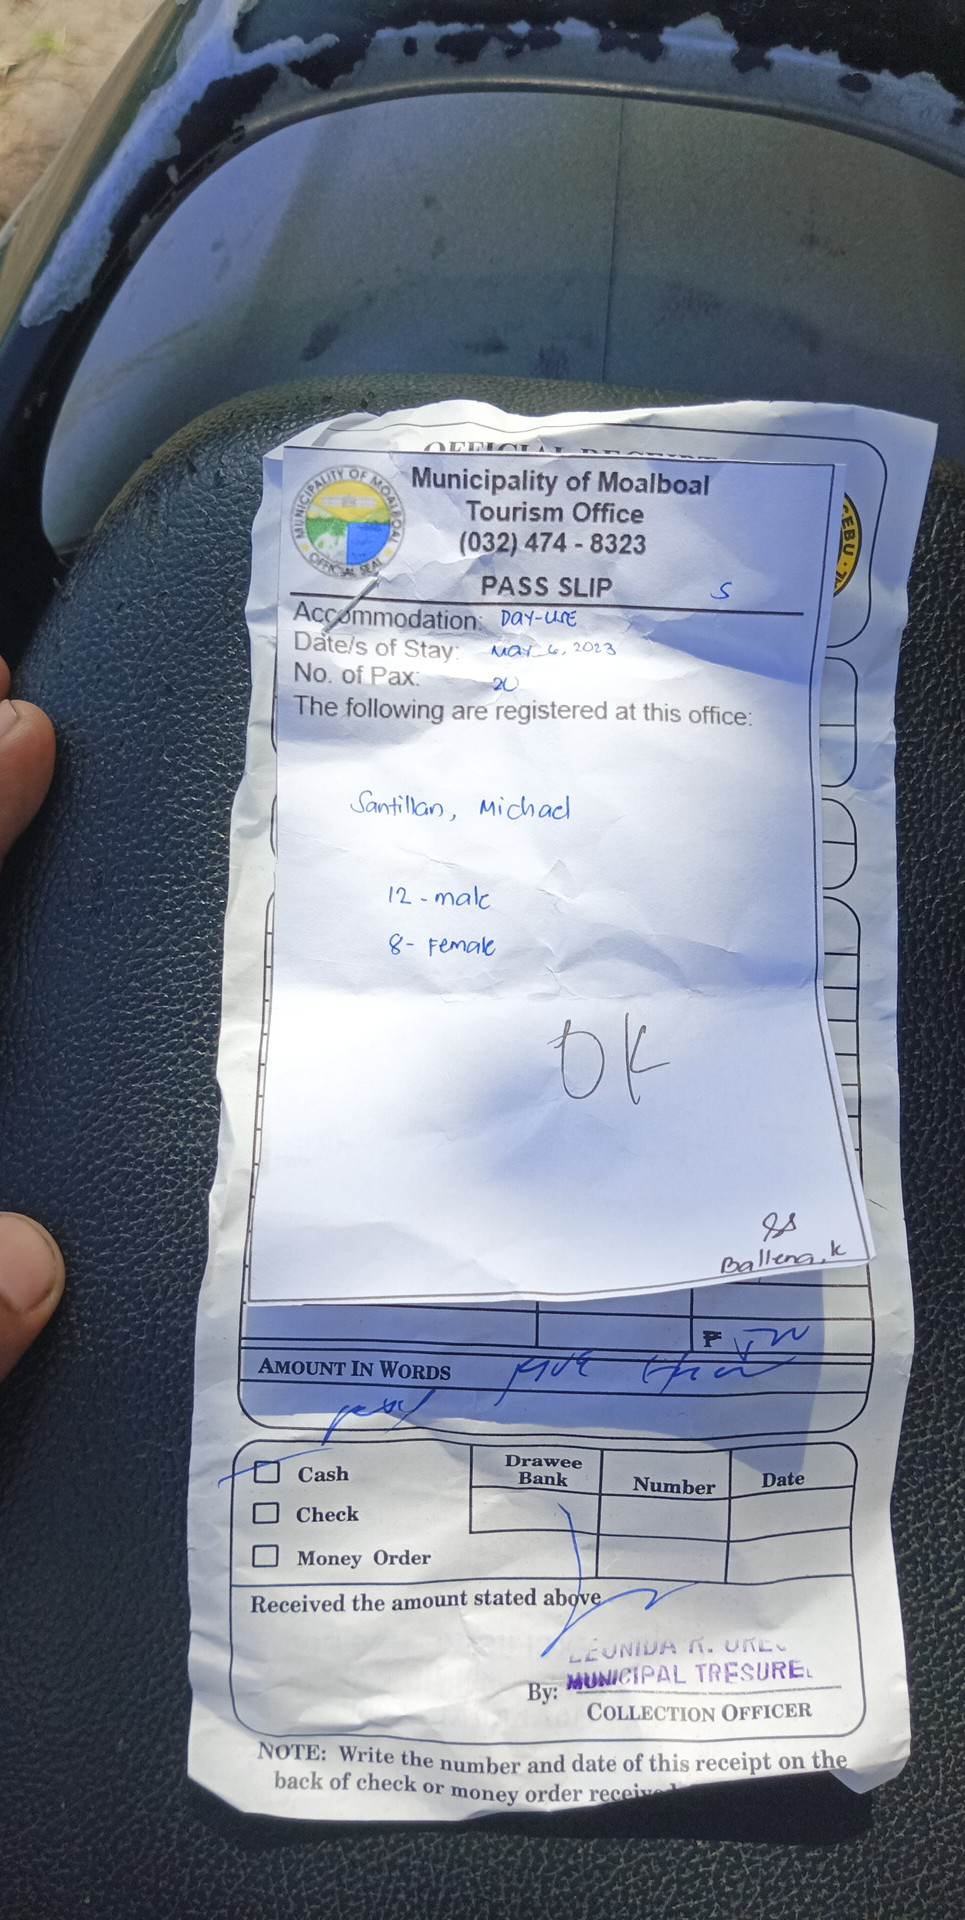 OFFICIAL RECEIPT
MUNICIPALITY OF MOALBOAL
OFFICIAL SEAL
CEBU
Municipality of Moalboal
Tourism Office
(032) 474 - 8323
PASS SLIP
S
Accommodation: DAY-USE
Date/s of Stay: MAY 6, 2023
No. of Pax: 20
The following are registered at this office:
Santillan, Michael
12 - male
8 - Female
OK
Ballena, K
₱
AMOUNT IN WORDS
Cash
Check
Money Order
Drawee Bank
Number
Date
Received the amount stated above
LEONIDA R.
MUNICIPAL TRESURE
By:
COLLECTION OFFICER
NOTE: Write the number and date of this receipt on the
back of check or money order